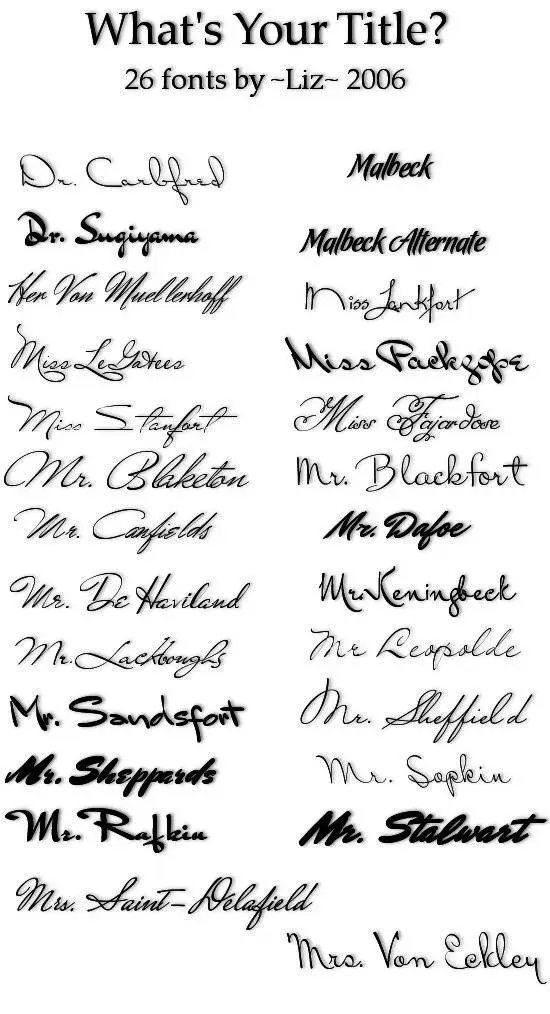 What's Your Title?
26 fonts by ~Liz~ 2006
Dr. Carbfred
Malbeck
Dr. Sugiyama
Malbeck Alternate
Her Von Muellerhoff
Miss Lankfort
Miss Le Gatees
Miss Packgope
Miss Stanfort
Miss Fajardose
Mr. Blaketon
Mr. Blackfort
Mr. Canfields
Mr. Dafoe
Mr. De Haviland
Mr. Keningbeck
Mr. Lackboughs
Mr Leopolde
Mr. Sandsfort
Mr. Sheffield
Mr. Sheppards
Mr. Sopkin
Mr. Rafkin
Mr. Stalwart
Mrs. Saint-Delafield
Mrs. Von Eckley